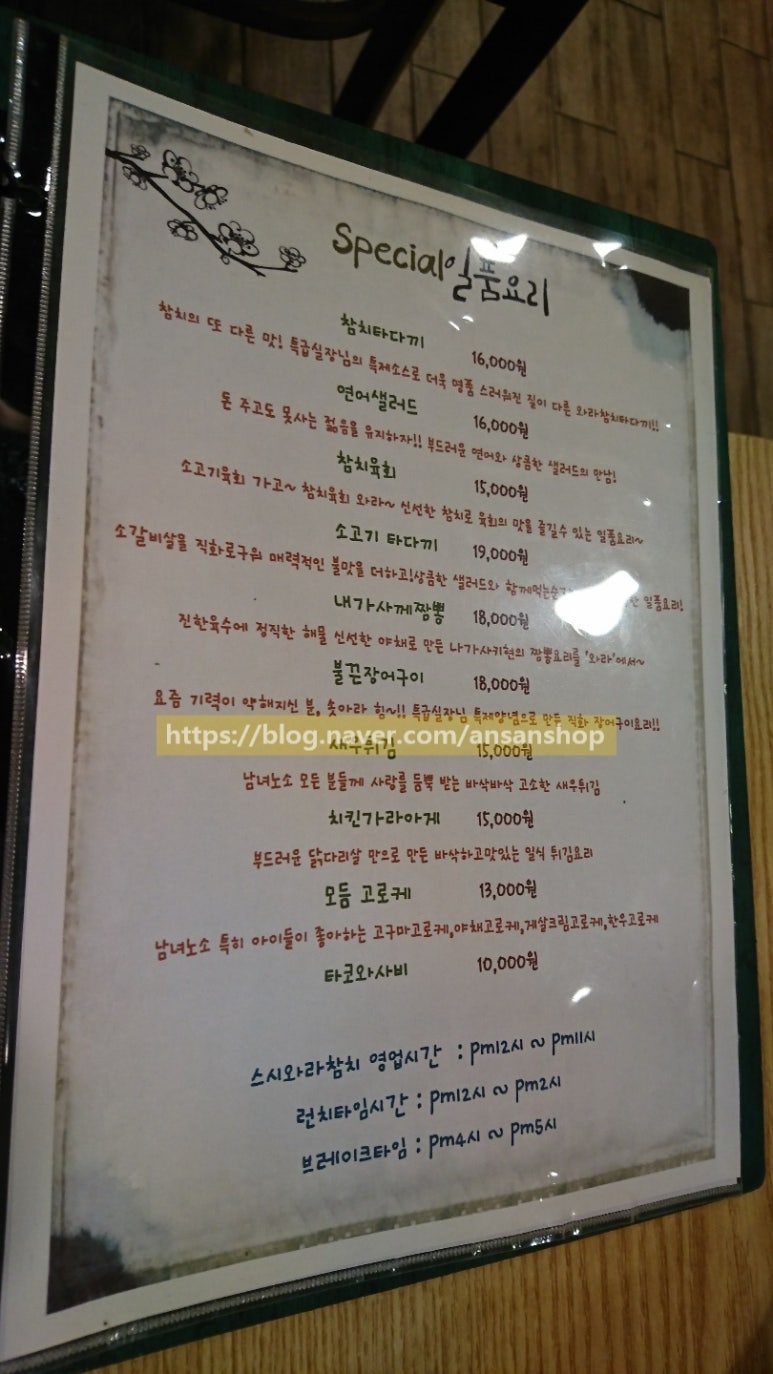 Special일품요리
참치타다끼 16,000원
참치의 또 다른 맛! 특급실장님의 특제소스로 더욱 명품 스러워진 질이 다른 와라참치타다끼!!
연어샐러드 16,000원
돈 주고도 못사는 젊음을 유지하자!! 부드러운 연어와 상큼한 샐러드의 만남!
참치육회 15,000원
소고기육회 가고~ 참치육회 와라~ 신선한 참치로 육회의 맛을 즐길수 있는 일품요리~
소고기 타다끼 19,000원
소갈비살을 직화로구워 매력적인 불맛을 더하고!상큼한 샐러드와 함께먹는 일품요리!
내가사께짬뽕 18,000원
진한육수에 정직한 해물 신선한 야채로 만든 나가사키현의 짬뽕요리를 '와라'에서~
불끈장어구이 18,000원
요즘 기력이 약해지신 분, 솟아라 힘~!! 특급실장님 특제양념으로 만든 직화 장어구이요리!!
https://blog.naver.com/ansanshop
새우튀김 15,000원
남녀노소 모든 분들께 사랑를 듬뿍 받는 바삭바삭 고소한 새우튀김
치킨가라아게 15,000원
부드러운 닭다리살 만으로 만든 바삭하고맛있는 일식 튀김요리
모듬 고로케 13,000원
남녀노소 특히 아이들이 좋아하는 고구마고로케,야채고로케,게살크림고로케,한우고로케
타코와사비 10,000원
스시와라참치 영업시간 : pm12시 ~ pm11시
런치타임시간 : pm12시 ~ pm2시
브레이크타임 : pm4시 ~ pm5시